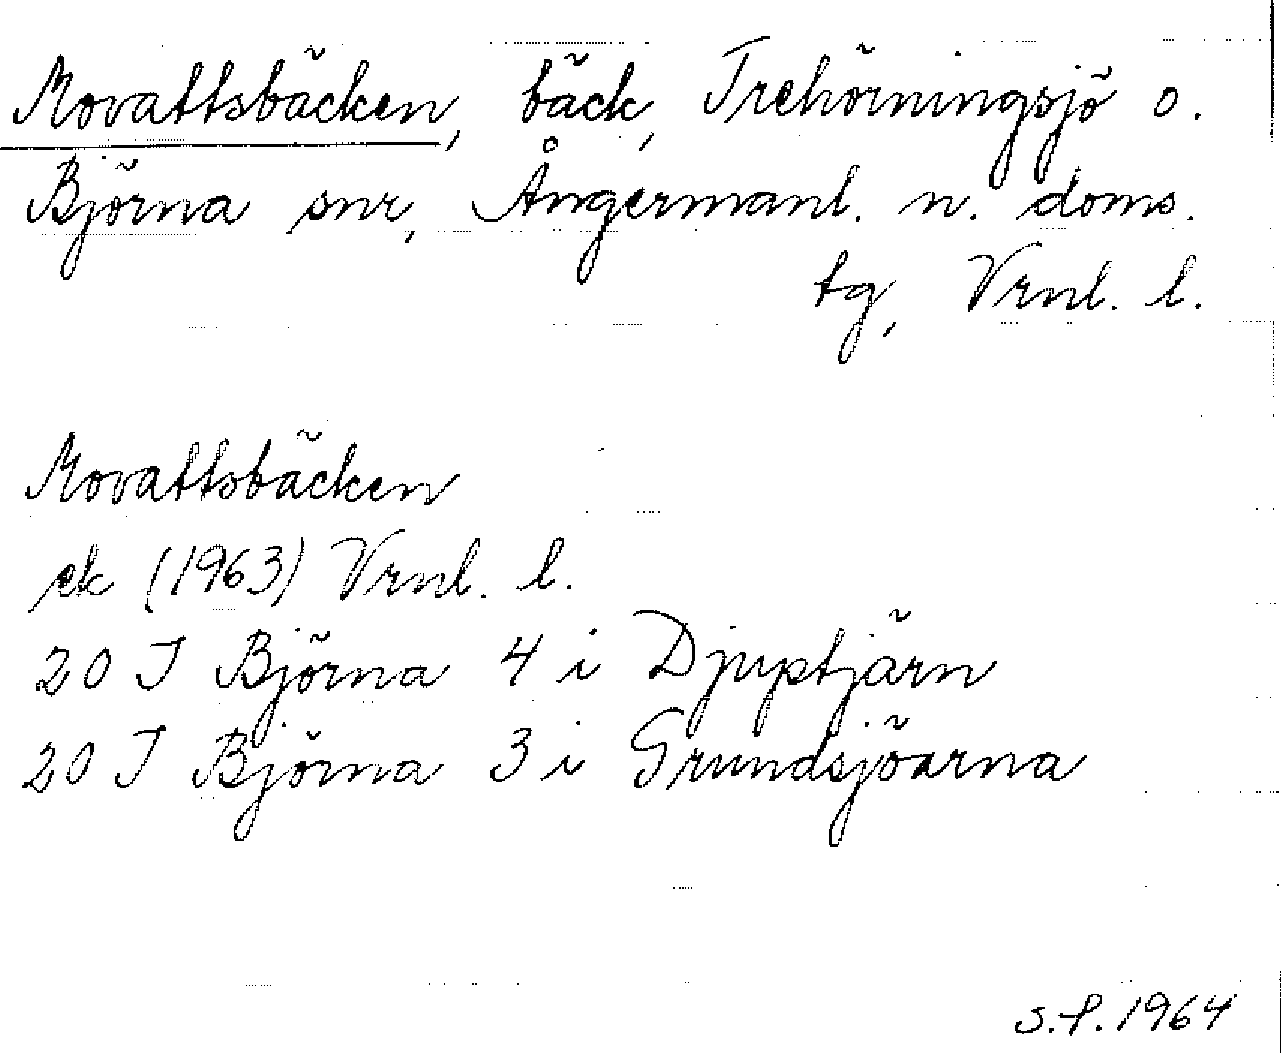 Movattsbäcken, bäck, Trehörningsjö o.
Björna snr, Ångermanl. n. doms.
tg, Vrnl. l.
Movattsbäcken
ek (1963) Vrnl. l.
20 I Björna 4 i Djuptjärn
20 I Björna 3 i Grundsjöarna
S.P. 1964